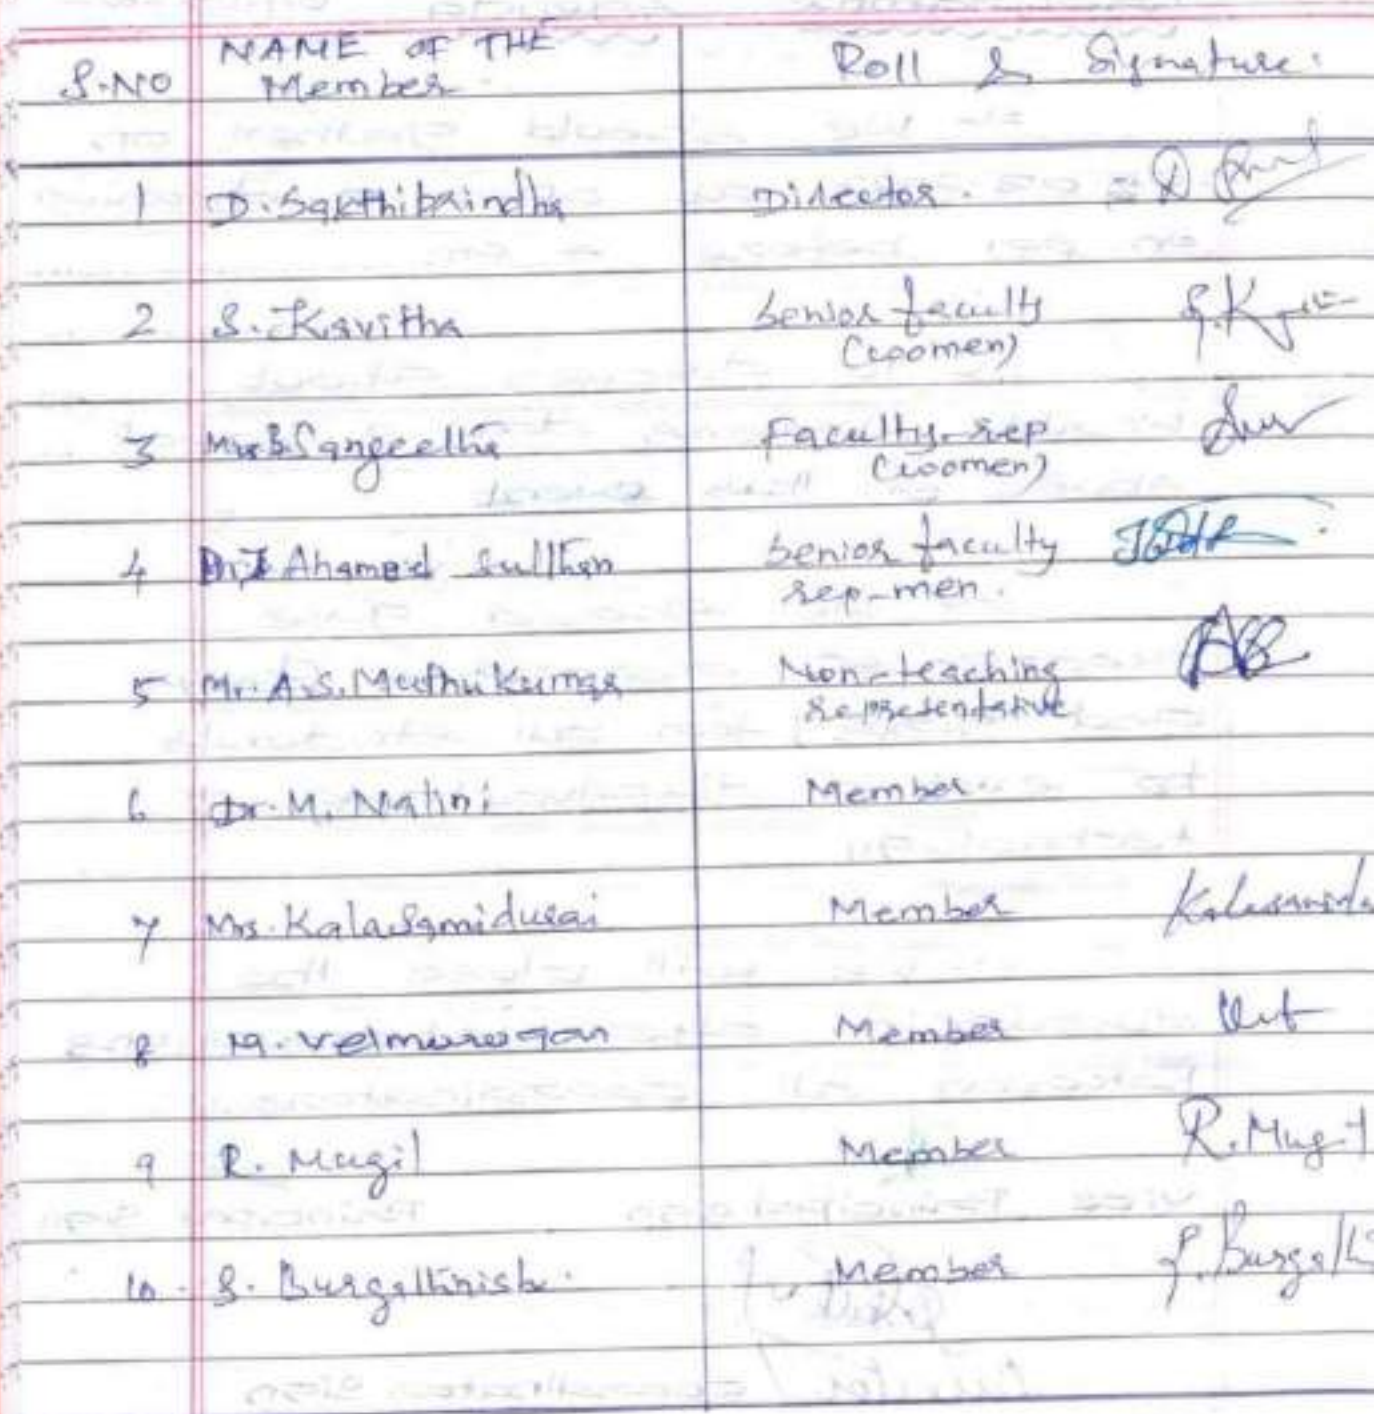 S.NO NAME OF THE Roll & Signature.
Member
1 D. Sakthibrindha Director. D
2 S. Kavitha Senior faculty S.K
(women)
3 Mrs B Sangeetha Faculty-rep
(women)
4 Dr. J Ahamed Sulthan Senior faculty
rep-men.
5 Mr. A.S. Muthukumar Non-teaching
representative
6 Dr. M. Nalini Member
7 Mrs. Kalasamidurai Member Kalasamidu
8 M. Velmurugan Member
9 R. Mugil Member R. Mugil
10. S. Member